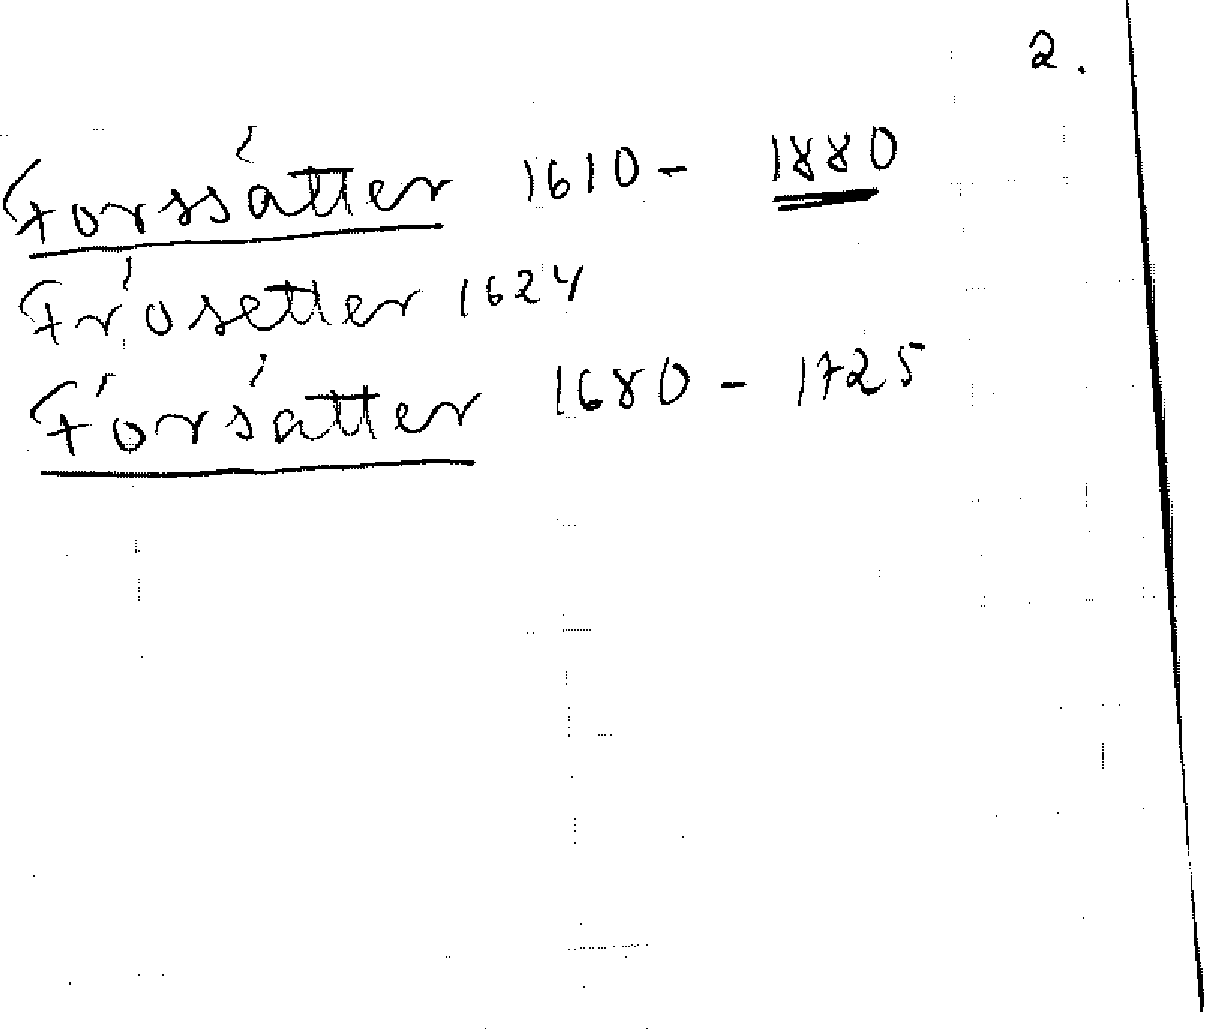 2.
Forssätter 1610 - 1880
Frösetter 1624
Försätter 1680 - 1725